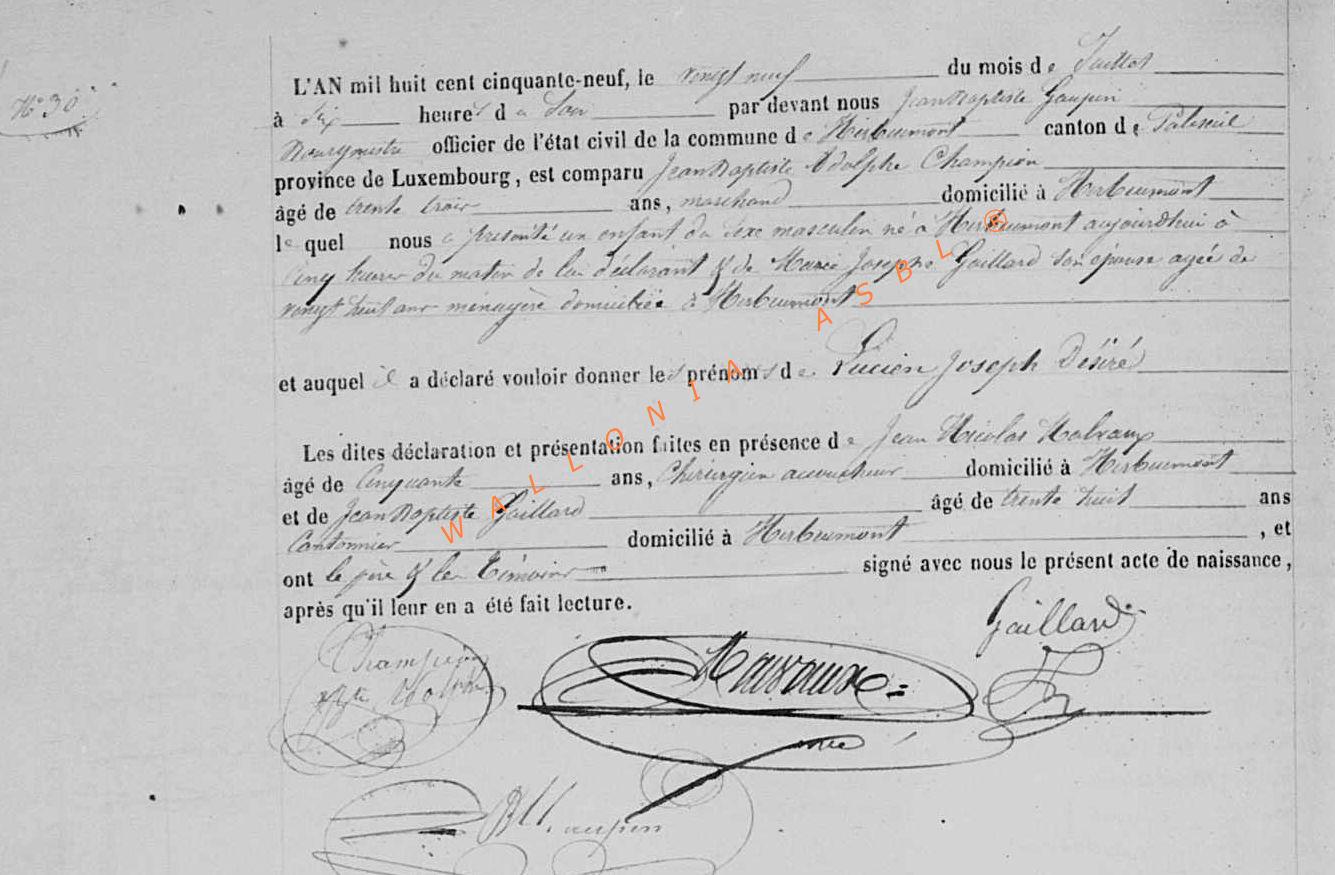 N° 30
L'AN mil huit cent cinquante-neuf, le vingt neuf du mois de Juillet
à six heures du soir par devant nous Jean Baptiste Gaupin
Bourgmestre officier de l'état civil de la commune de Herbeumont canton de Paliseul
province de Luxembourg, est comparu Jean Baptiste Adolphe Champion
âgé de trente trois ans, marchand domicilié à Herbeumont
lequel nous a présenté un enfant du sexe masculin né à Herbeumont aujourdhui à
cinq heures du matin de lui déclarant & de Marie Josephe Gaillard son épouse agée de
vingt huit ans ménagère domiciliée à Herbeumont
et auquel il a déclaré vouloir donner les prénoms de Lucien Joseph Désiré
Les dites déclaration et présentation faites en présence de Jean Nicolas
âgé de Cinquante ans, Chirurgien accoucheur domicilié à Herbeumont
et de Jean Baptiste Gaillard âgé de trente huit ans
Cantonnier domicilié à Herbeumont, et
ont le père & les témoins signé avec nous le présent acte de naissance,
après qu'il leur en a été fait lecture.
Gaillard
Champion
WALLONIA ASBL ®